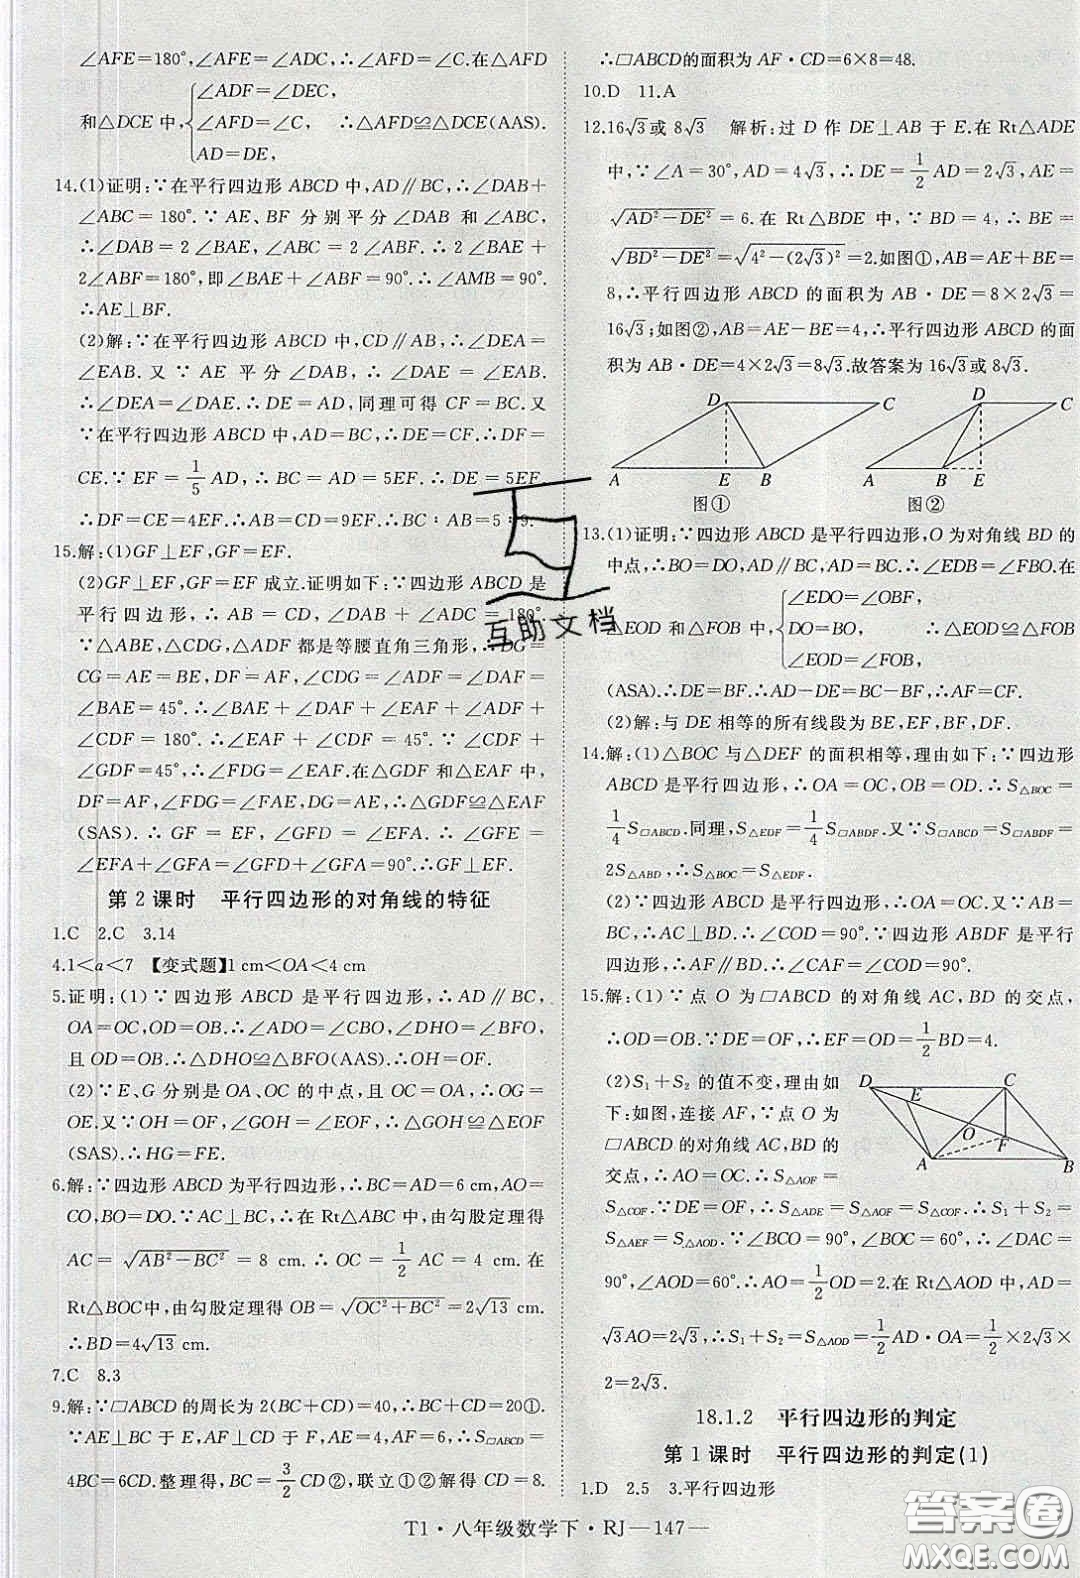 ∠AFE=180°,∠AFE=∠ADC,∴∠AFD=∠C.在△AFD
和△DCE中,{∠ADF=∠DEC,
∠AFD=∠C,
AD=DE,
∴△AFD≌△DCE(AAS).
14.(1)证明:∵在平行四边形ABCD中,AD∥BC,∴∠DAB+
∠ABC=180°.∵AE、BF分别平分∠DAB和∠ABC,
∴∠DAB=2∠BAE,∠ABC=2∠ABF.∴2∠BAE+
2∠ABF=180°,即∠BAE+∠ABF=90°.∴∠AMB=90°.
∴AE⊥BF.
(2)解:∵在平行四边形ABCD中,CD∥AB,∴∠DEA=
∠EAB.又∵AE平分∠DAB,∴∠DAE=∠EAB.
∴∠DEA=∠DAE.∴DE=AD,同理可得CF=BC.又
∵在平行四边形ABCD中,AD=BC,∴DE=CF.∴DF=
CE.∵EF=1/5 AD,∴BC=AD=5EF.∴DE=5EF.
∴DF=CE=4EF.∴AB=CD=9EF.∴BC∶AB=5∶9.
15.解:(1)GF⊥EF,GF=EF.
(2)GF⊥EF,GF=EF成立.证明如下:∵四边形ABCD是
平行四边形,∴AB=CD,∠DAB+∠ADC=180°.
∵△ABE,△CDG,△ADF都是等腰直角三角形,∴DG=
CG=AE=BE,DF=AF,∠CDG=∠ADF=∠DAF=
∠BAE=45°.∴∠BAE+∠DAF+∠EAF+∠ADF+
∠CDF=180°.∴∠EAF+∠CDF=45°.∵∠CDF+
∠GDF=45°,∴∠FDG=∠EAF.在△GDF和△EAF中,
DF=AF,∠FDG=∠FAE,DG=AE,∴△GDF≌△EAF
(SAS).∴GF=EF,∠GFD=∠EFA.∴∠GFE=
∠EFA+∠GFA=∠GFD+∠GFA=90°.∴GF⊥EF.
第2课时 平行四边形的对角线的特征
1.C 2.C 3.14
4.1<a<7 【变式题】1 cm<OA<4 cm
5.证明:(1)∵四边形ABCD是平行四边形,∴AD∥BC,
OA=OC,OD=OB.∴∠ADO=∠CBO,∠DHO=∠BFO,
且OD=OB.∴△DHO≌△BFO(AAS).∴OH=OF.
(2)∵E、G分别是OA、OC的中点,且OC=OA,∴OG=
OE.又∵OH=OF,∠GOH=∠EOF,∴△GOH≌△EOF
(SAS).∴HG=FE.
6.解:∵四边形ABCD为平行四边形,∴BC=AD=6 cm,AO=
CO,BO=DO.∵AC⊥BC,∴在Rt△ABC中,由勾股定理得
AC=√(AB²-BC²)=8 cm.∴OC=1/2 AC=4 cm.在
Rt△BOC中,由勾股定理得OB=√(OC²+BC²)=2√13 cm.
∴BD=4√13 cm.
7.C 8.3
9.解:∵□ABCD的周长为2(BC+CD)=40,∴BC+CD=20①.
∵AE⊥BC于E,AF⊥CD于F,AE=4,AF=6,∴S□ABCD=
4BC=6CD.整理得,BC=3/2 CD②,联立①②解得CD=8.
∴□ABCD的面积为AF·CD=6×8=48.
10.D 11.A
12.16√3或8√3 解析:过D作DE⊥AB于E.在Rt△ADE
中,∵∠A=30°,AD=4√3,∴DE=1/2 AD=2√3,AE=
√(AD²-DE²)=6.在Rt△BDE中,∵BD=4,∴BE=
√(BD²-DE²)=√(4²-(2√3)²)=2.如图①,AB=AE+BE=
8,∴平行四边形ABCD的面积为AB·DE=8×2√3=
16√3;如图②,AB=AE-BE=4,∴平行四边形ABCD的面
积为AB·DE=4×2√3=8√3.故答案为16√3或8√3.
D C D C
A E B A B E
图① 图②
13.(1)证明:∵四边形ABCD是平行四边形,O为对角线BD的
中点,∴BO=DO,AD∥BC.∴∠EDB=∠FBO.在
△EOD和△FOB中,{∠EDO=∠OBF,
DO=BO,
∠EOD=∠FOB,
∴△EOD≌△FOB
(ASA).∴DE=BF.∴AD-DE=BC-BF,∴AF=CF.
(2)解:与DE相等的所有线段为BE,EF,BF,DF.
14.解:(1)△BOC与△DEF的面积相等,理由如下:∵四边形
ABCD是平行四边形,∴OA=OC,OB=OD.∴S△BOC=
1/4 S□ABCD.同理,S△EDF=1/4 S□ABDF.又∵S□ABCD=S□ABDF=
2S△ABD,∴S△BOC=S△EDF.
(2)∵四边形ABCD是平行四边形,∴OA=OC.又∵AB=
BC,∴BD⊥AC.∴∠COD=90°.∵四边形ABDF是平行
四边形,∴AF∥BD.∴∠CAF=∠COD=90°.
15.解:(1)∵点O为□ABCD的对角线AC,BD的交点,
∴OD=OB.∵DE=OF,∴EF=OD=1/2 BD=4.
(2)S₁+S₂的值不变,理由如
下:如图,连接AF,∵点O为
□ABCD的对角线AC,BD的
交点,∴AO=CO.∴S△AOF=
D C
E
O
F
A B
S△COF.∵DE=OF,∴S△ADE=S△AOF=S△COF.∴S₁+S₂=
S△AEF=S△AOD.∵∠BCO=90°,∠BOC=60°,∴∠DAC=
90°,∠AOD=60°.∴AO=1/2 OD=2.在Rt△AOD中,AD=
√3AO=2√3,∴S₁+S₂=S△AOD=1/2 AD·OA=1/2×2√3×
2=2√3.
18.1.2 平行四边形的判定
第1课时 平行四边形的判定(1)
1.D 2.5 3.平行四边形
T1·八年级数学下·RJ—147—
互助文档
答案圈
MXQE.COM